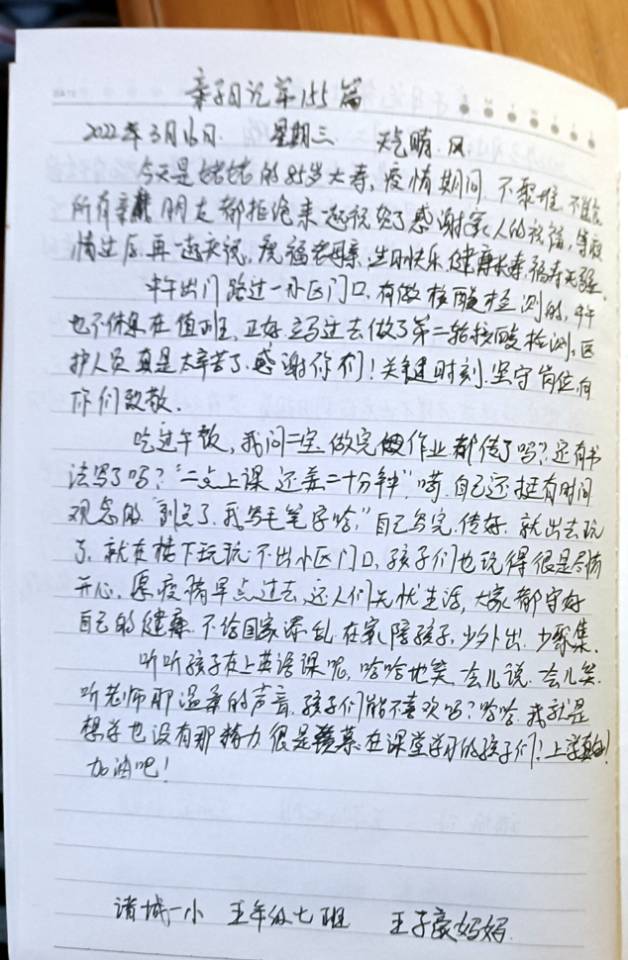 亲子日记第155篇
2022年3月16日. 星期三 天气晴.风
今天是姥姥的85岁大寿，疫情期间 不聚堆，不
所有亲戚朋友都拒绝来一起祝贺了感谢家人的祝福，等疫
情过后再一起庆祝，祝福老母亲，生日快乐，健康长寿，福寿无疆。
中午出门路过一小区门口，有做核酸检测的，中午
也不休息在值班，正好立马过去做了第二轮核酸检测，医
护人员真是太辛苦了.感谢你们！关键时刻.坚守岗位，向
你们致敬.
吃过午饭，我问二宝.做完的作业都传了吗？还有书
法写了吗？“二点上课，还差二十分钟”，嗬，自己还挺有时间
观念的“到点了，我写毛笔字哈，”自己写完，传好，就出去玩
了，就在楼下玩玩.不出小区门口，孩子们也玩得很是尽情
开心，愿疫情早点过去，还人们无忧生活，大家都守好
自己的健康，不给国家添乱，在家陪孩子，少外出，少聚集.
听听孩子在上英语课呢，哈哈地笑，会儿说，会儿笑.
听老师那温柔的声音，孩子们能不喜欢吗？哈哈，我就是
想学也没有那精力很是羡慕在课堂学习的孩子们！上学真好！
加油吧！
诸城一小 五年级七班 王子豪妈妈.